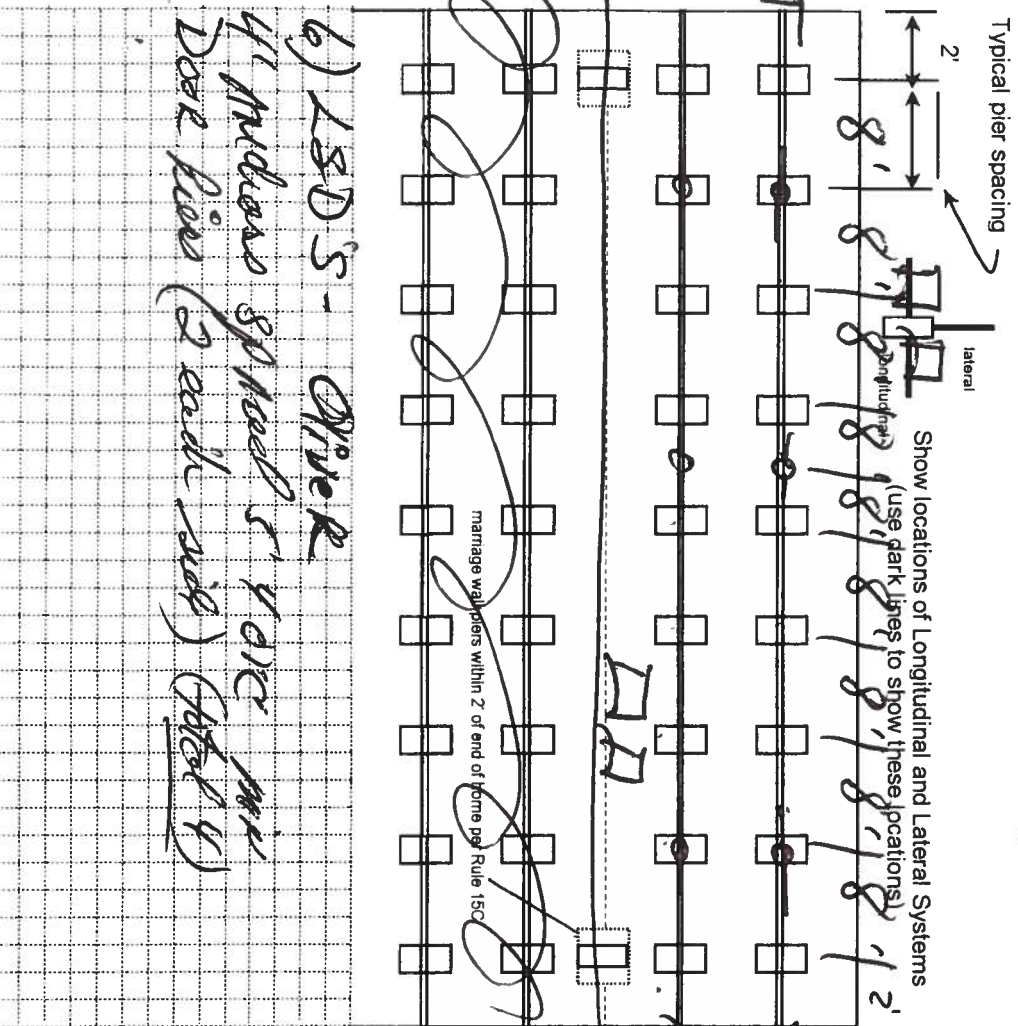 Typical pier spacing
2'
lateral
longitudinal
Show locations of Longitudinal and Lateral Systems
(use dark lines to show these locations)
8' 8' 8' 8' 8' 8' 8' 8' 8' 2'
marriage wall piers within 2' of end of home per Rule 15C
6) LSD'S - Oliver
4' Anchors spaced 5' 4" O/C
Door piers (2 each side) (total 4)